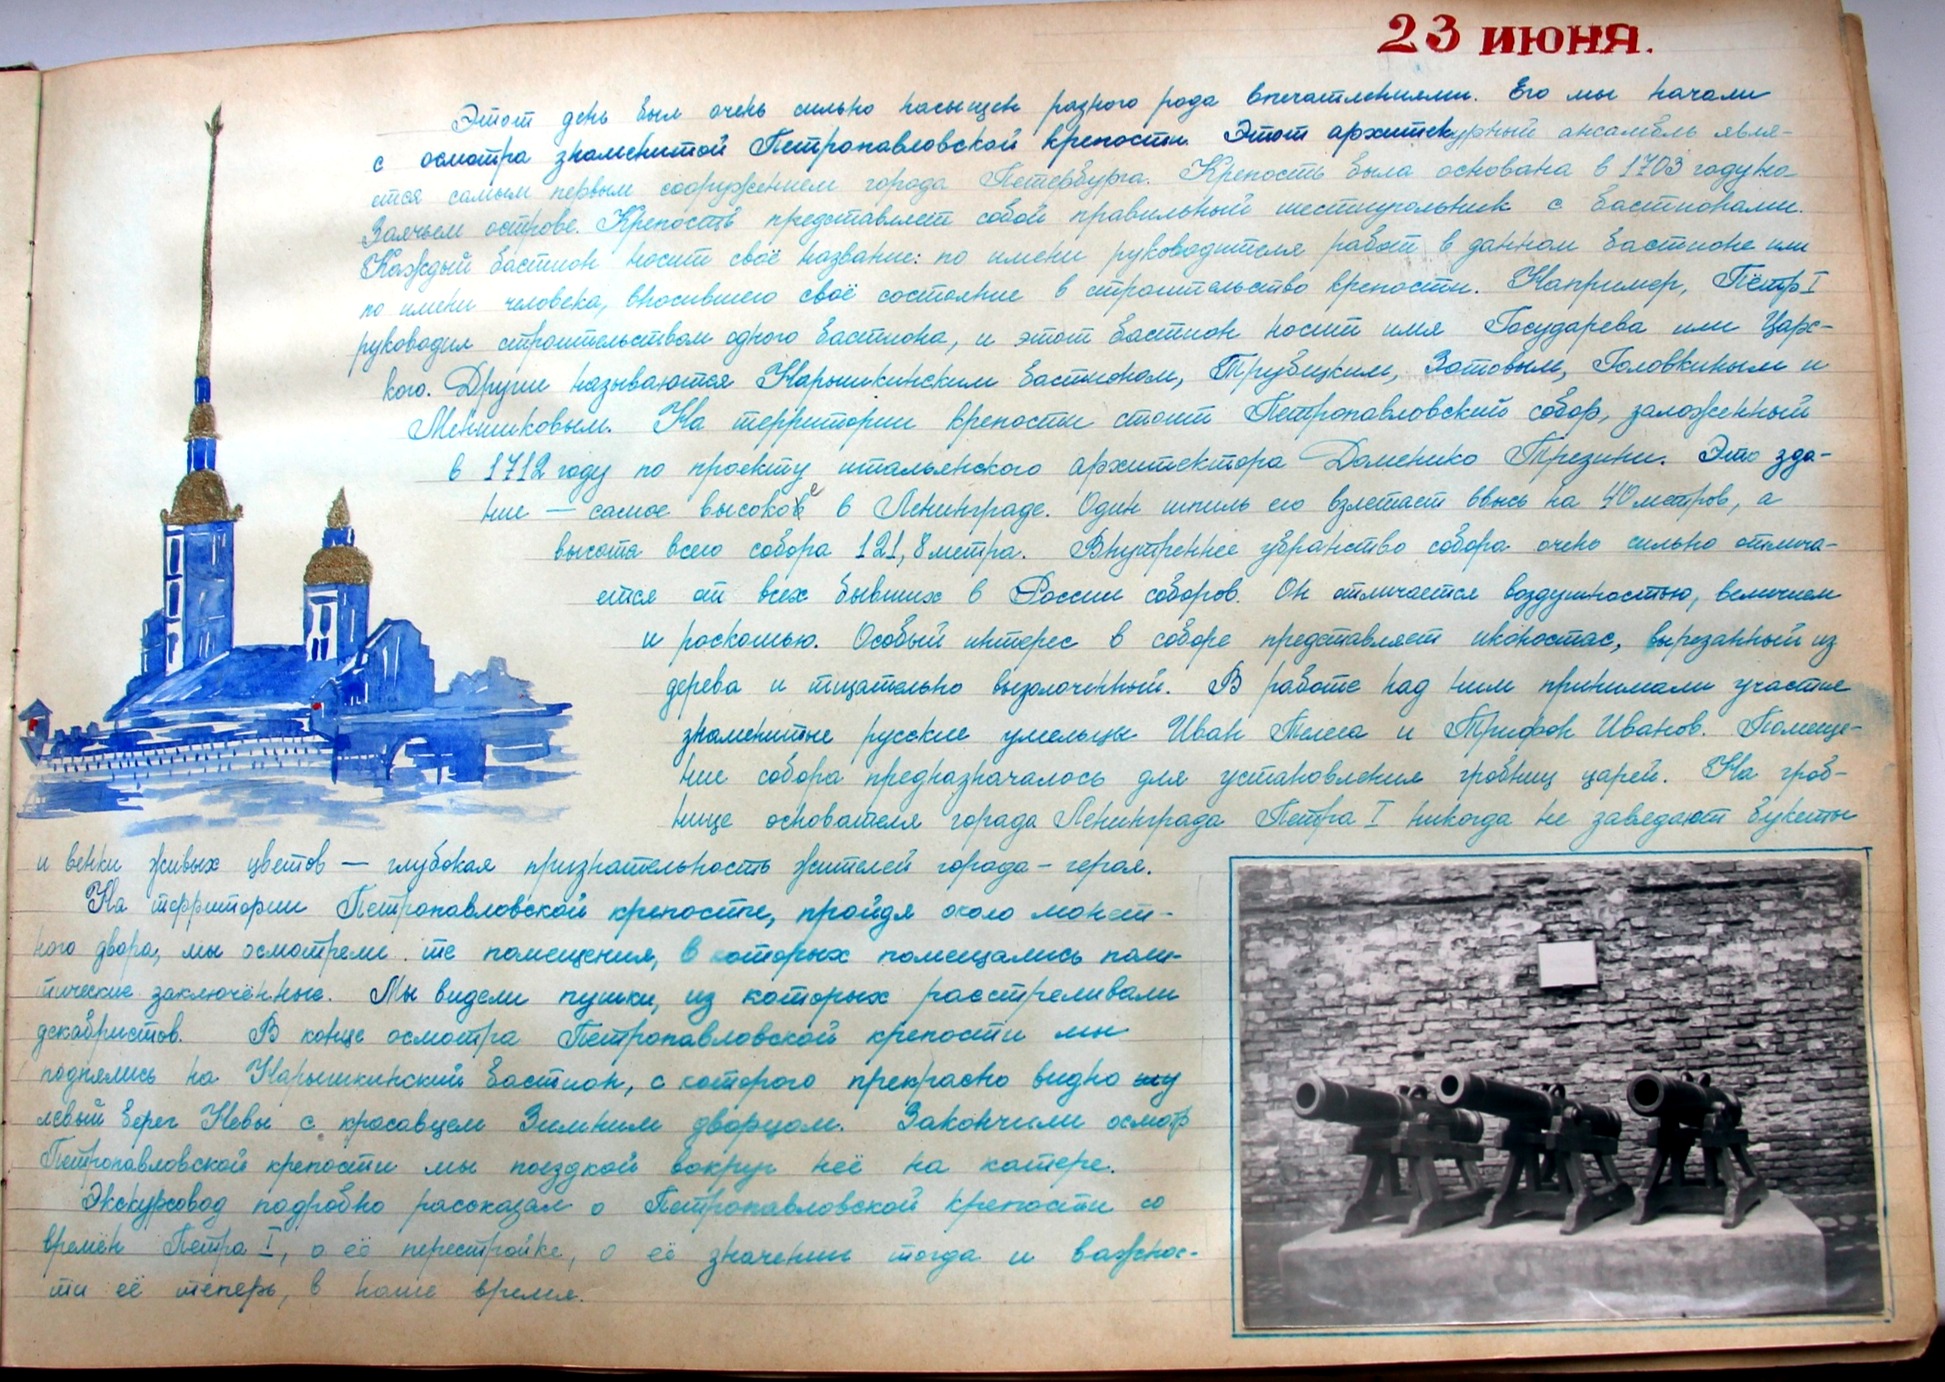 23 июня.
Этот день был очень сильно насыщен разного рода впечатлениями. Его мы начали
с осмотра знаменитой Петропавловской крепости. Этот архитекурный ансамбль явля-
ется самым первым сооружением города Петербурга. Крепость была основана в 1703 году на
Заячьем острове. Крепость представляет собой правильный шестиугольник с бастионами.
Каждый бастион носит своё название: по имени руководителя работ в данном бастионе или
по имени человека, вносившего своё состояние в строительство крепости. Например, Пётр I
руководил строительством одного бастиона, и этот бастион носит имя Государева или Царс-
кого. Другие называются Нарышкинским бастионом, Трубецким, Зотовым, Головкиным и
Меншиковым. На территории крепости стоит Петропавловский собор, заложенный
в 1712 году по проекту итальянского архитектора Доменико Трезини. Это зда-
ние — самое высокое в Ленинграде. Один шпиль его взлетает ввысь на 40 метров, а
высота всего собора 121,8 метра. Внутреннее убранство собора очень сильно отлича-
ется от всех бывших в России соборов. Он отличается воздушностью, величием
и роскошью. Особый интерес в соборе представляет иконостас, вырезанный из
дерева и тщательно вызолоченный. В работе над ним принимали участие
знаменитые русские умельцы Иван Телега и Трифон Иванов. Помеще-
ние собора предназначалось для установления гробниц царей. На гроб-
нице основателя города Ленинграда Петра I никогда не заведают букеты
и венки живых цветов — глубокая признательность жителей города-героя.
На территории Петропавловской крепости, пройдя около монет-
ного двора, мы осмотрели те помещения, в которых помещались поли-
тические заключённые. Мы видели пушки, из которых расстреливали
декабристов. В конце осмотра Петропавловской крепости мы
поднялись на Нарышкинский бастион, с которого прекрасно видно
левый берег Невы с красавцем Зимним дворцом. Закончили осмотр
Петропавловской крепости мы поездкой вокруг неё на катере.
Экскурсовод подробно рассказал о Петропавловской крепости со
времён Петра I, о её перестройке, о её значении тогда и важнос-
ти её теперь, в наше время.